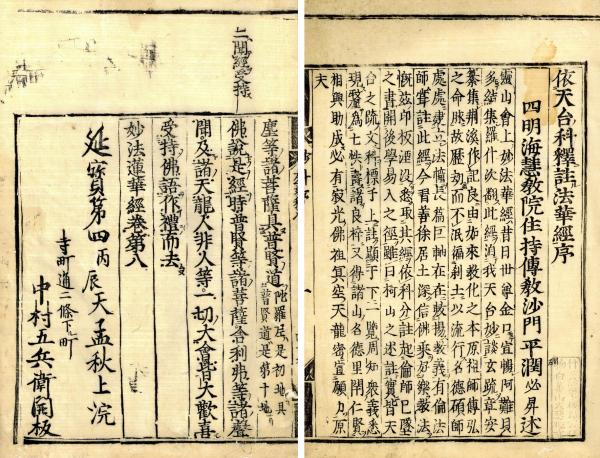 依天台科釋註法華經序
四明海慧教院住持傳教沙門平潤必昇述
靈山會上妙法華經昔日世尊金口宣慱阿難貝
多結集羅什次翻此經消我天台妙談玄疏章安
纂集荆溪作記良由如來教化之本原祖師傳弘
之命脉故歷劫而不泯徧刹土以流行名德碩師
處處建立法幢長篇巨軸在在敷揚教義有倫法
師嘗註此經今善徐居士深信佛乘樂教法
慨茲印板湮没悉取其經依科分註起倫師已墜
之書開後學易入之徑雖曰柯山之述註實皆天
台之疏文科標于上註顯于下一覽周知衆義悉
現釐爲七帙壽諸良梓又得諸山名德里閈仁賢
相興助成必有寂光佛祖冥空天龍密宣願力原
夫
塵等諸菩薩具普賢道
陀羅尼是初地具
普賢道是第十地
佛說是經時普賢等諸菩薩舍利弗等諸聲
聞及諸天龍人非人等一切大會皆大歡喜
受持佛語作禮而去
妙法蓮華經卷第八
延寶第四丙辰天孟秋上浣
寺町通二條下町
中村五兵衛開板